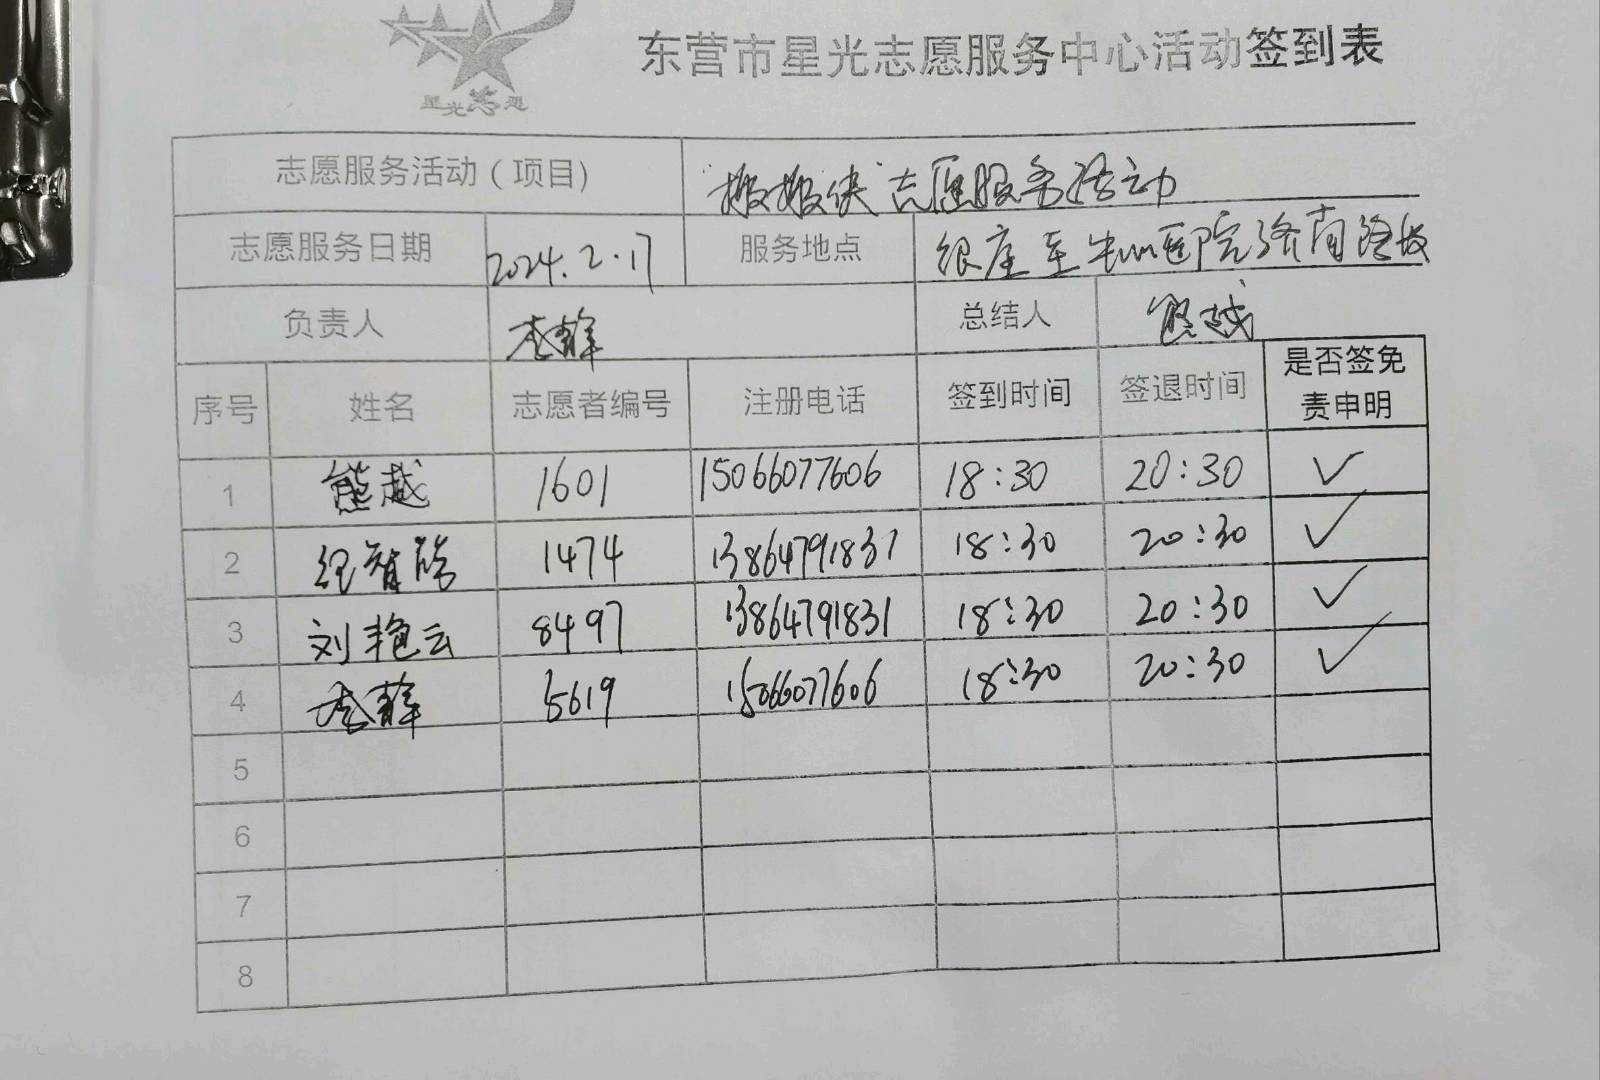 东营市星光志愿服务中心活动签到表
星光志愿
志愿服务活动（项目） "搬搬侠"志愿服务活动
志愿服务日期 2024.2.17 服务地点 银座至中心医院济南路段
负责人 总结人 熊越
序号 姓名 志愿者编号 注册电话 签到时间 签退时间 是否签免
责申明
1 熊越 1601 15066077606 18:30 20:30 ✓
2 1474 13864791831 18:30 20:30 ✓
3 刘艳云 8497 13864791831 18:30 20:30 ✓
4 5619 15066077606 18:30 20:30 ✓
5
6
7
8